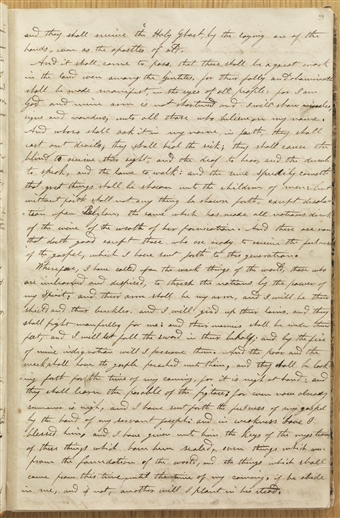 and they shall receive the Holy Ghost by the laying on of the
hands, even as the apostles of old.
And it shall come to pass, that there shall be a great work
in the land even among the Gentiles, for their folly and abominations
shall be made manifest, in the eyes of all people: for I am
God and mine arm is not shortened and I will show miracles,
signs and wonders, unto all those who believe on my name.
And whoso shall ask it in my name, in faith, they shall
cast out devils; they shall heal the sick; they shall cause the
blind to receive their sight, and the deaf to hear, and the dumb
to speak, and the lame to walk: and the time speedily cometh
that great things shall be shown unto the children of men: but
without faith shall not any thing be shown forth, except desola-
-tion upon Babylon, the same which has made all nations drink
of the wine of the wrath of her fornication. And there are none
that doeth good except those who are ready to receive the fulness
of the gospel, which I have sent forth to this generation.
Wherefore, I have called upon the weak things of the world, those who
are unlearned and despised, to thresh the nations by the power of
my Spirit; and their arm shall be my arm, and I will be their
shield and their buckler, and I will gird up their loins, and they
shall fight manfully for me: and their enemies shall be under their
feet; and I will let fall the sword in their behalf; and by the fire
of mine indignation will I preserve them. And the poor and the
meek shall have the gospel preached unto them, and they shall be look-
ing forth for the time of my coming, for it is nigh at hand: and
they shall learn the parable of the fig tree; for even now already
summer is nigh, and I have sent forth the fulness of my gospel
by the hand of my servant Joseph: and in weakness have I
blessed him, and I have given unto him the keys of the mystery
of those things which have been sealed, even things which were
from the foundation of the world, and the things which shall
come from this time until the time of my coming, if he abide
in me, and if not, another will I plant in his stead.